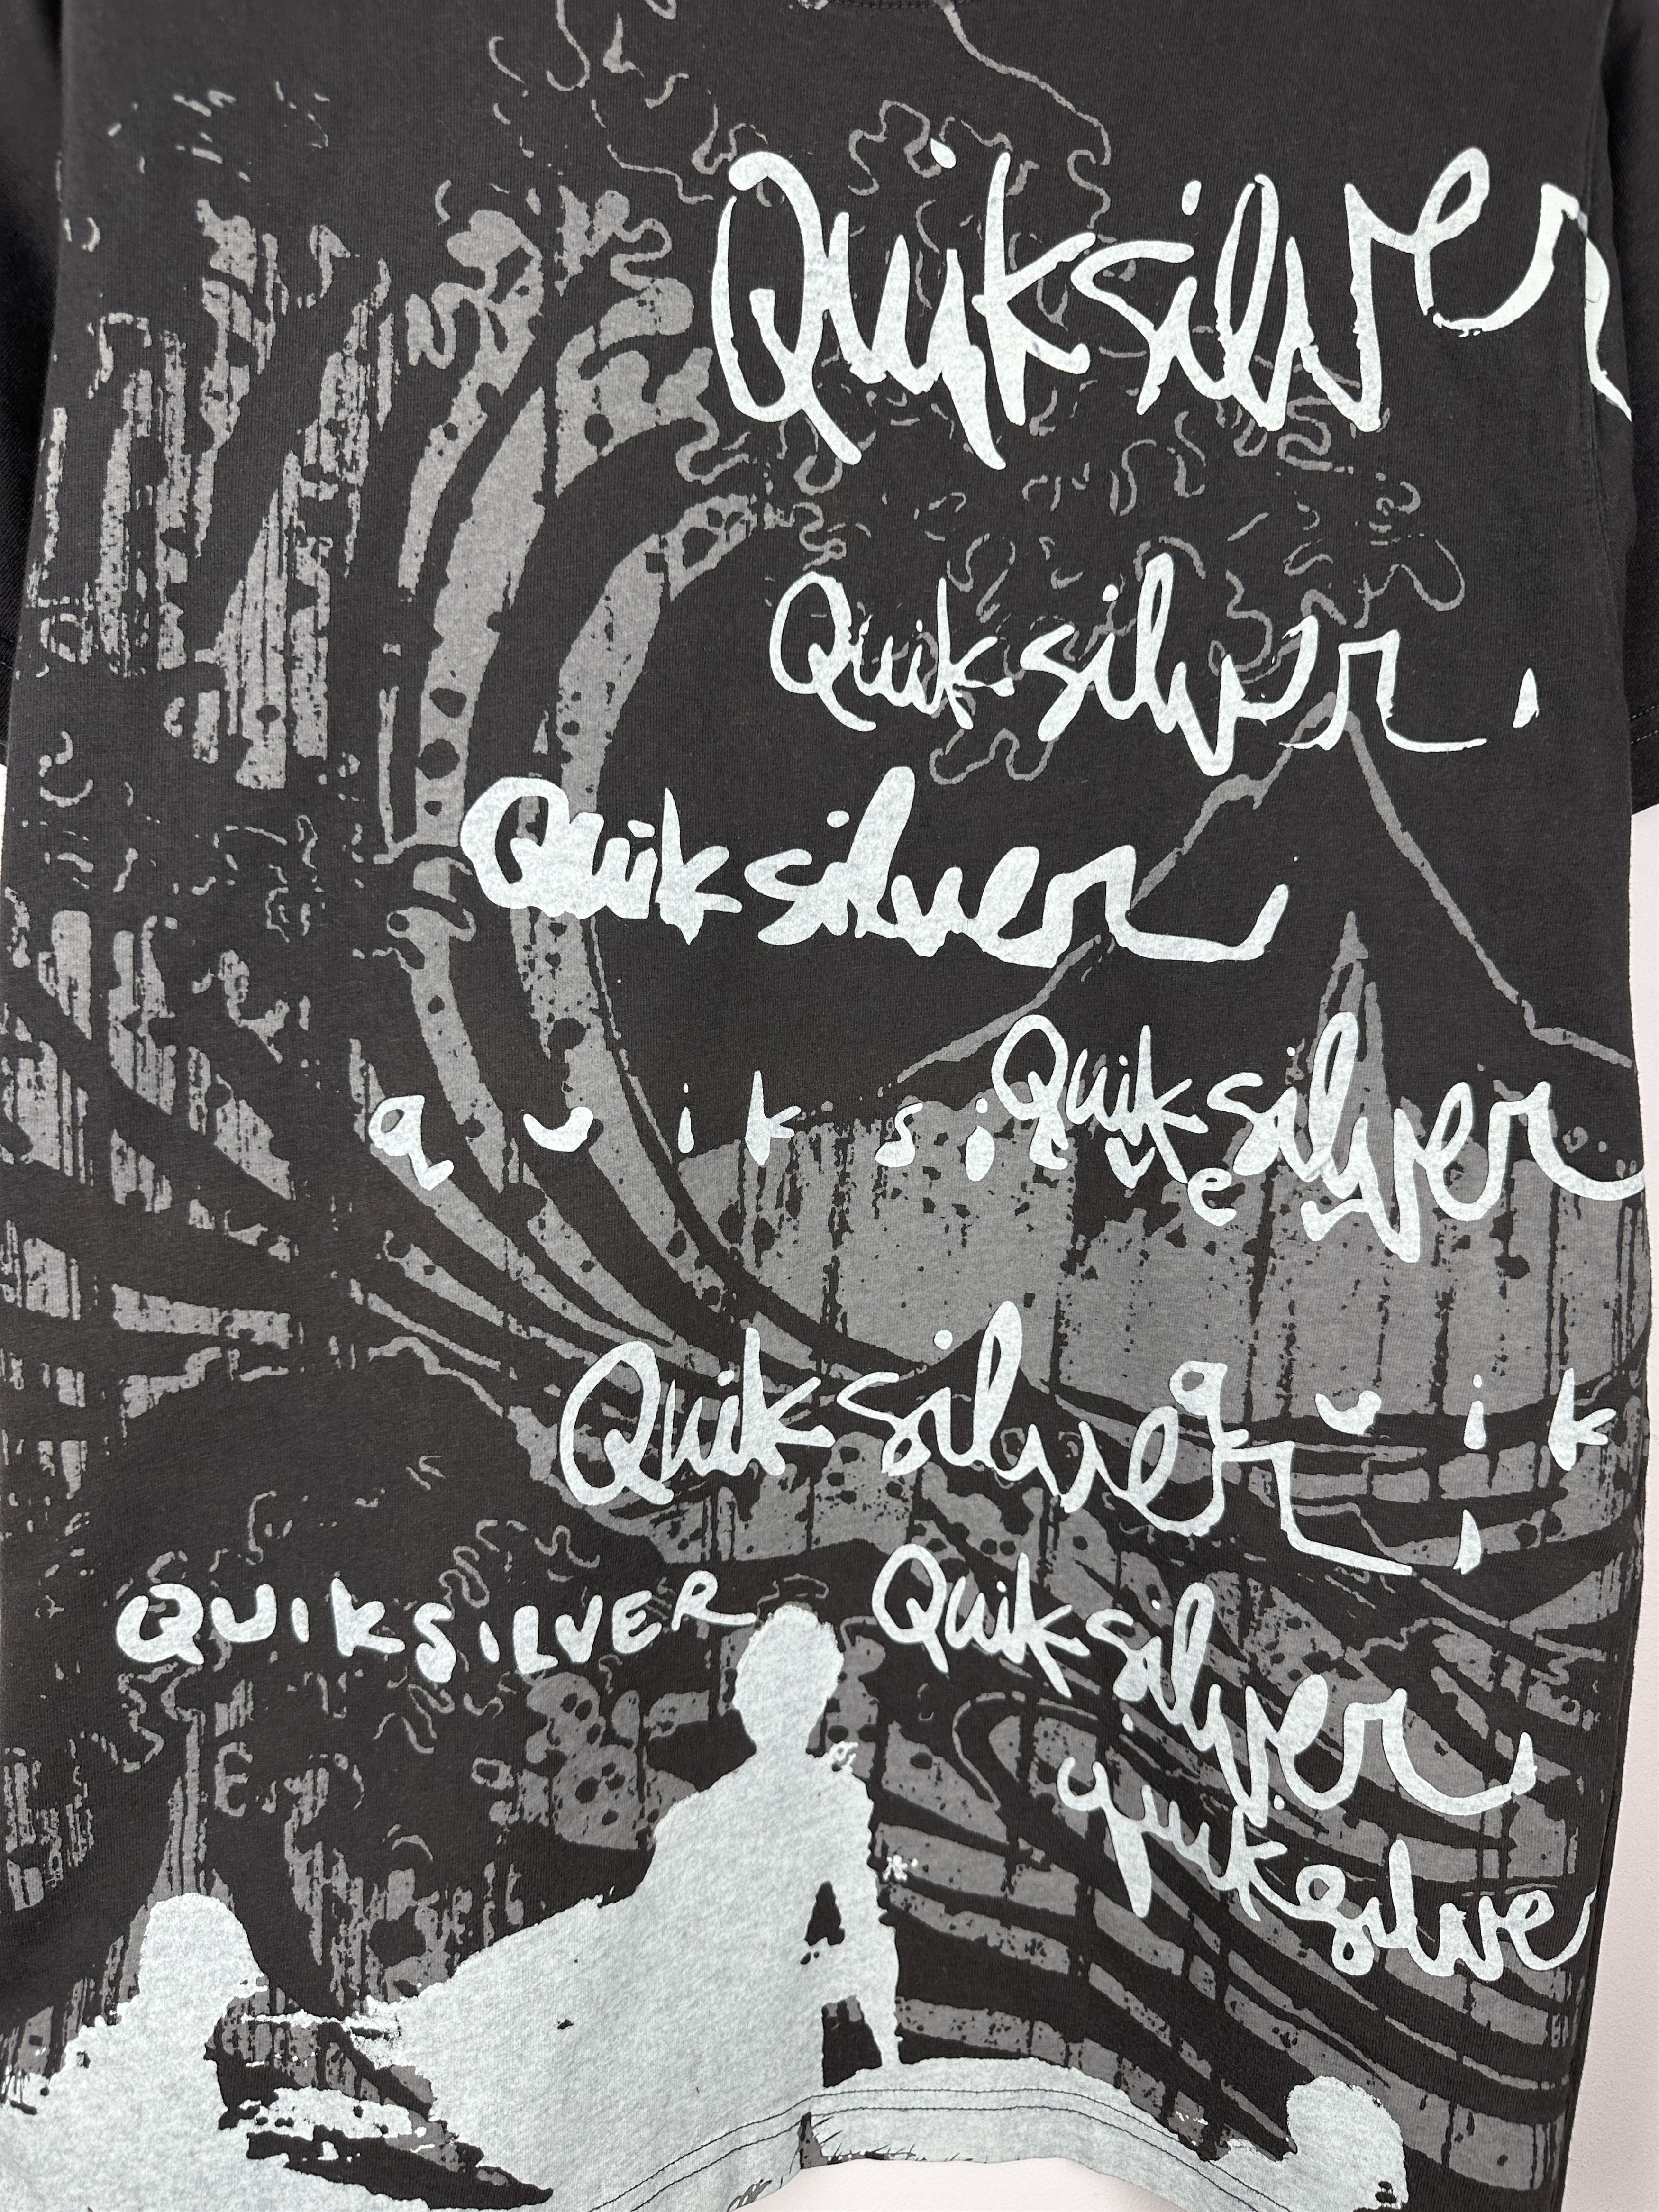 Quiksilver
Quiksilver
Quiksilver
quiksi ve
Quiksilver
Quiksilver
quik
QUIKSILVER
Quiksilver
quiksilve